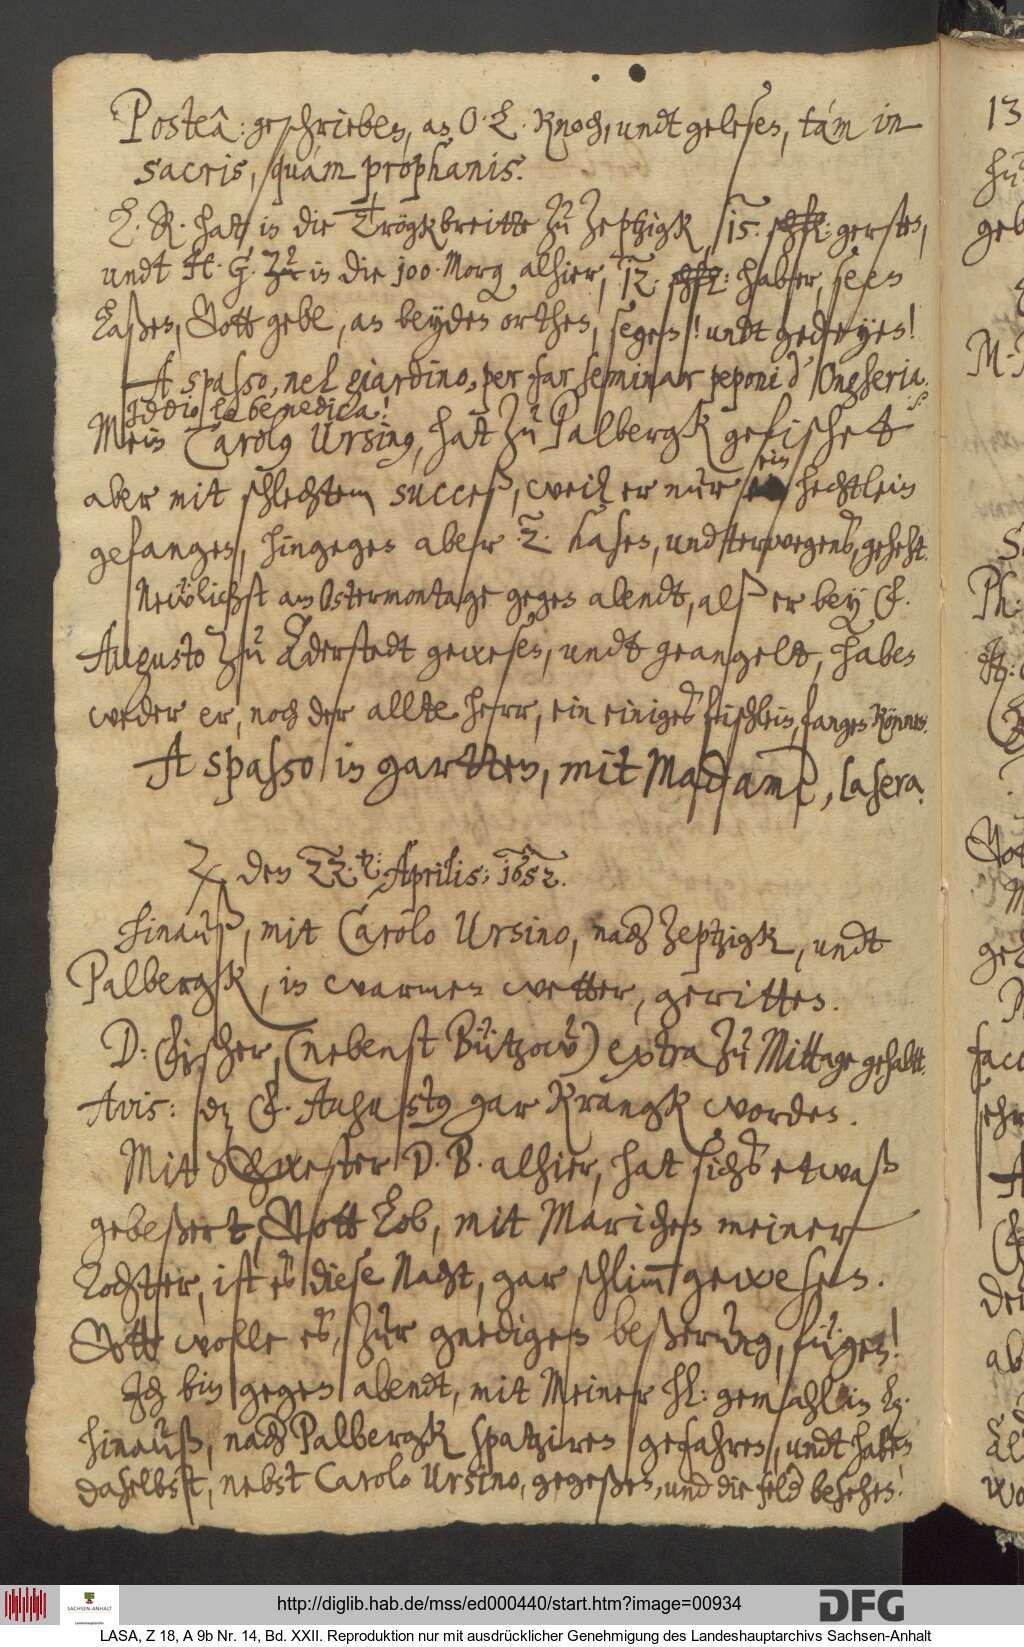 Posteâ: geschrieben, an O. L. Knoch, undt gelesen, tám in
sacris, quám prophanis.
E. R. hat in die Trögkbreitte zu Zeptzigk, 15. schfl: gersten,
undt H. G. Zu in die 100 Morg alhier, 12. schfl: haber, seen
Laßen, Gott gebe, an beyden orthen, segen! undt gedeyen!
A spasso, nel giardino, per far seminar peponi d'Ongheria.
Iddio le benedica!
Mein Carolus Ursinus, hat zu Palbergk gefischet
aber mit schlechtem succeß, weil er nur ein hechtlein
gefangen, hingegen aber 2. hasen, undterwegens, gehezt.
Neẅlichst am Ostermontage gegen abendt, alß er bey F.
Augusto zu Ederstedt gewesen, undt geangelt, haben
weder er, noch der allte herr, ein einiges fischlein, fangen können.
A spasso in gartten, mit Madame, la sera.
den 22. t: Aprilis: 1652.
Hinauß, mit Carolo Ursino, nach Zeptzigk, undt
Palbergk, in warmen wetter, geritten.
D: Fischer, (nebenst Bützow) extra zu Mittage gehabtt.
Avis: dz F. Augustus gar krangk worden.
Mit Schwester D. B. alhier, hat sichs etwaß
gebeßert, Gott Lob, mit Mariechen meiner
Tochter, ist es diese Nacht, gar schlim̅ gewesen.
Gott wolle es, zur gnedigen beßerung, fügen!
Ich bin gegen abendt, mit Meiner H: gemahlin L.
hinauß, nach Palbergk spatziren gefahren, undt haben
daselbst, nebst Carolo Ursino, gegeßen, und die felder besehen.
13
http://diglib.hab.de/mss/ed000440/start.htm?image=00934
SACHSEN-ANHALT
Landeshauptarchiv
DFG
LASA, Z 18, A 9b Nr. 14, Bd. XXII. Reproduktion nur mit ausdrücklicher Genehmigung des Landeshauptarchivs Sachsen-Anhalt